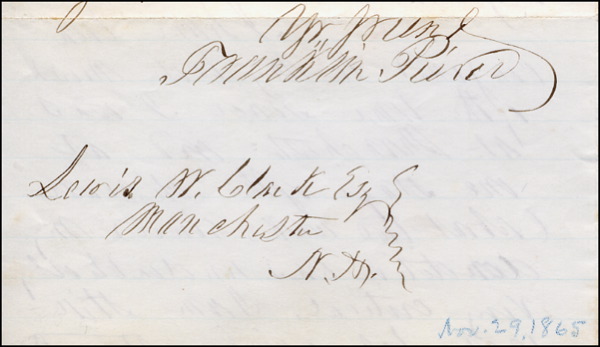 Yr. friend
Franklin Pierce
Lewis W. Clark Esq
Manchester
N. H.
Nov. 29, 1865